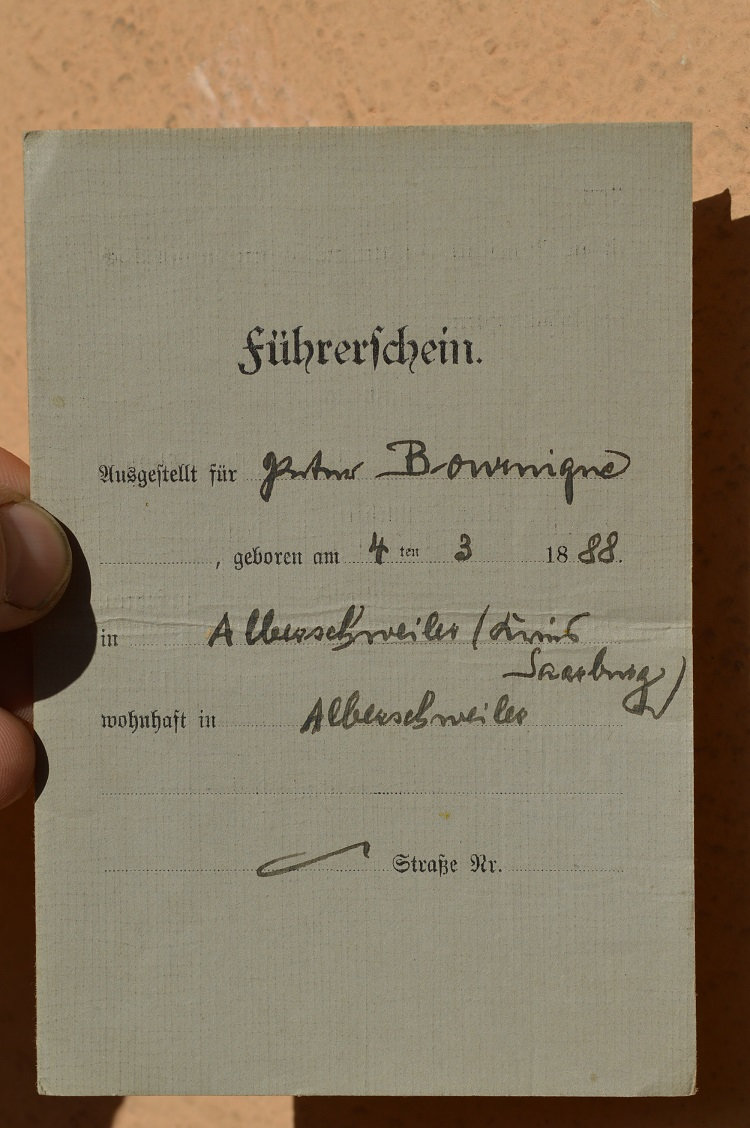 Führerschein.
Ausgestellt für Peter Bournique
, geboren am 4 ten 3 1888.
in Alberschweiler (Kreis
Saarburg)
wohnhaft in Alberschweiler
Straße Nr.